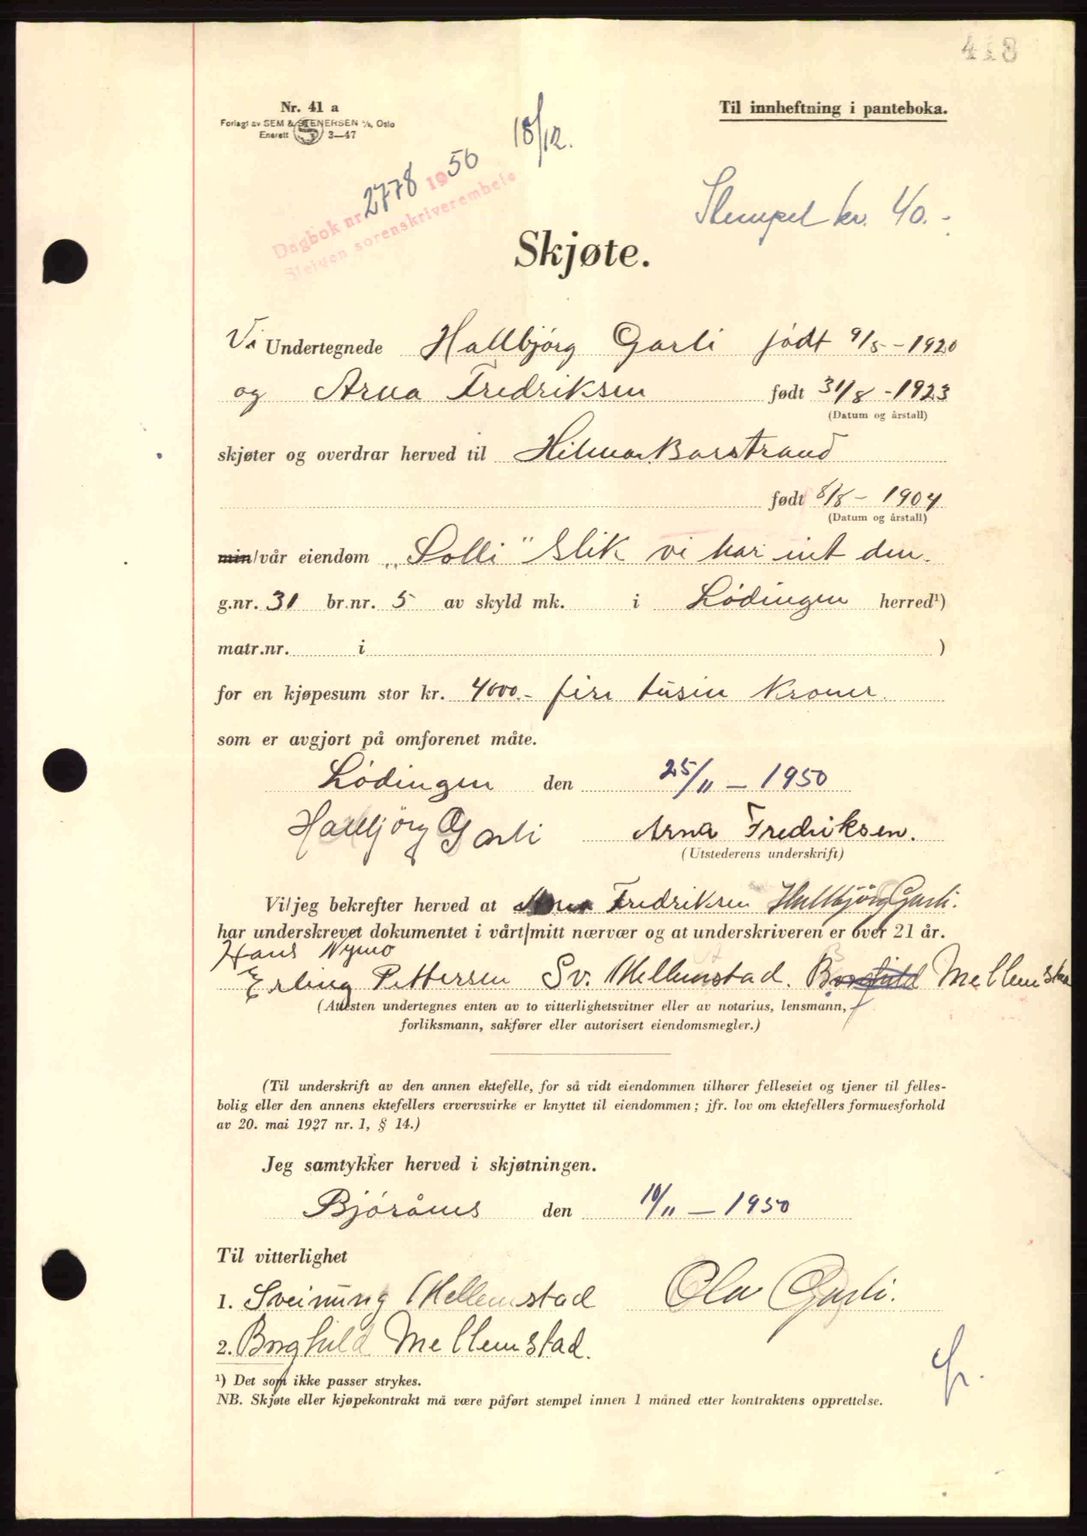 418
Nr. 41 a
Til innheftning i panteboka.
Forlagt av SEM & STENERSEN A/S, Oslo
Enerett S 3—47
18/12.
Dagbok nr. 2778 1950
Steigen sorenskriverembede
Stempel kr. 40.-
Skjøte.
Vi Undertegnede Hallbjørg Garli født 9/5 - 1920
og Arna Fredriksen født 31/8 - 1923
(Datum og årstall)
skjøter og overdrar herved til Hilmar Barstrand
født 8/8 - 1904
(Datum og årstall)
min/vår eiendom „Solli" slik vi har int den.
g.nr. 31 br.nr. 5 av skyld mk. i Lødingen herred¹)
matr.nr. i )
for en kjøpesum stor kr. 4000.- fire tusin kroner.
som er avgjort på omforenet måte.
Lødingen den 25/11 - 1950
Hallbjörg Garli Arna Fredriksen.
(Utstederens underskrift)
Vi/jeg bekrefter herved at Arna Fredriksen Hallbjørg Garli.
har underskrevet dokumentet i vårt/mitt nærvær og at underskriveren er over 21 år.
Hans Nymo
Erling Pettersen Sv. Mellemstad. Borghild Mellemstad
(Attesten undertegnes enten av to vitterlighetsvitner eller av notarius, lensmann,
forliksmann, sakfører eller autorisert eiendomsmegler.)
(Til underskrift av den annen ektefelle, for så vidt eiendommen tilhører felleseiet og tjener til felles-
bolig eller den annens ektefellers ervervsvirke er knyttet til eiendommen; jfr. lov om ektefellers formuesforhold
av 20. mai 1927 nr. 1, § 14.)
Jeg samtykker herved i skjøtningen.
Bjøråns den 10/11 - 1950
Til vitterlighet
1. Sveinung Mellemstad Ola Garli.
2. Borghild Mellemstad.
¹) Det som ikke passer strykes.
NB. Skjøte eller kjøpekontrakt må være påført stempel innen 1 måned etter kontraktens opprettelse.